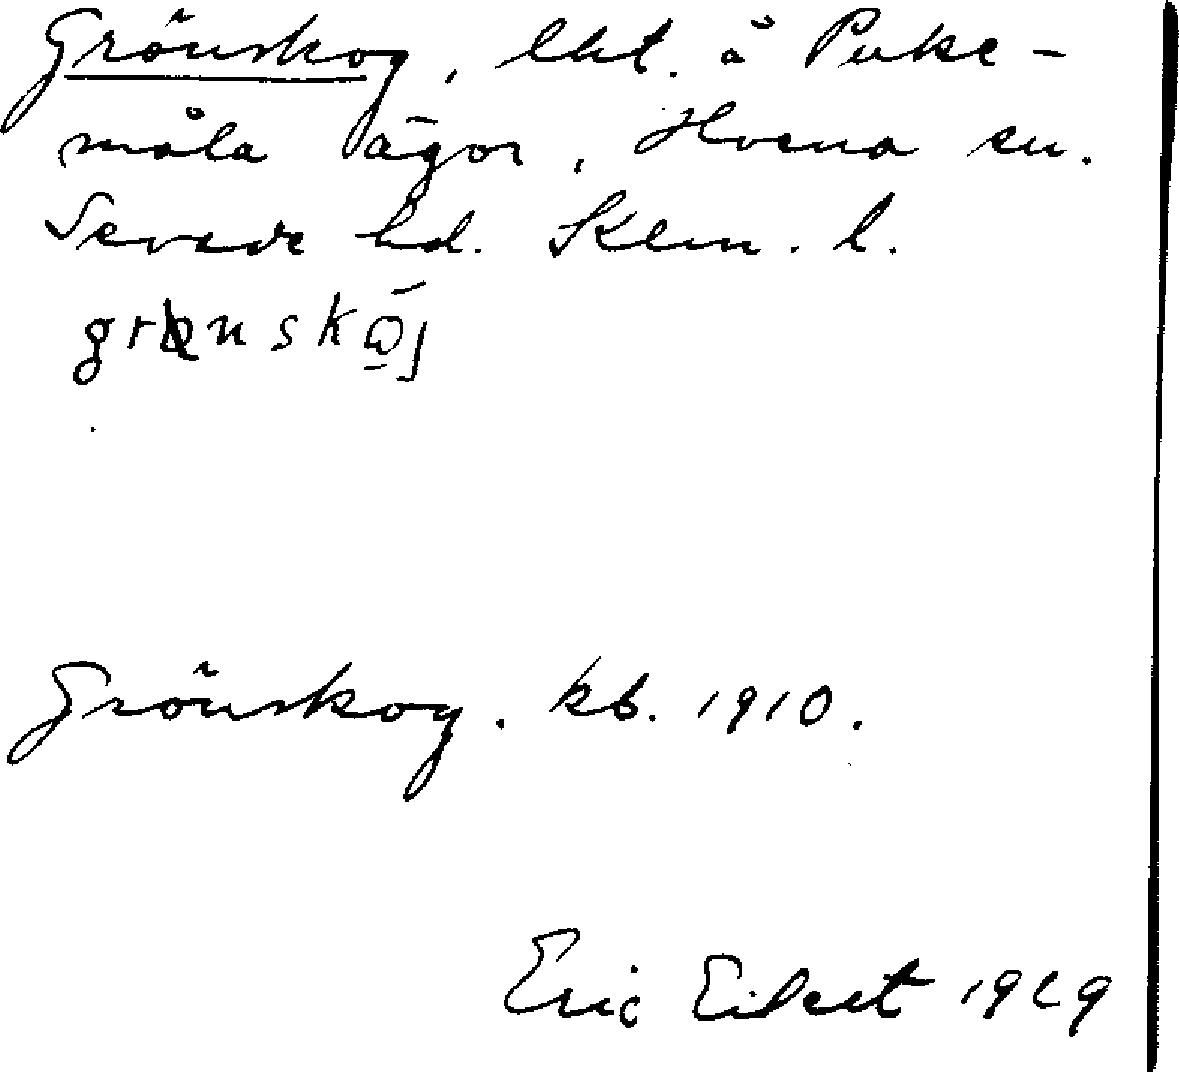 Grönskog, lht. å Puke-
måla ägor, Hvena sn.
Sevede hd. Kalm. l.
Grönskog. kb. 1910.
Eric Eilert 1929